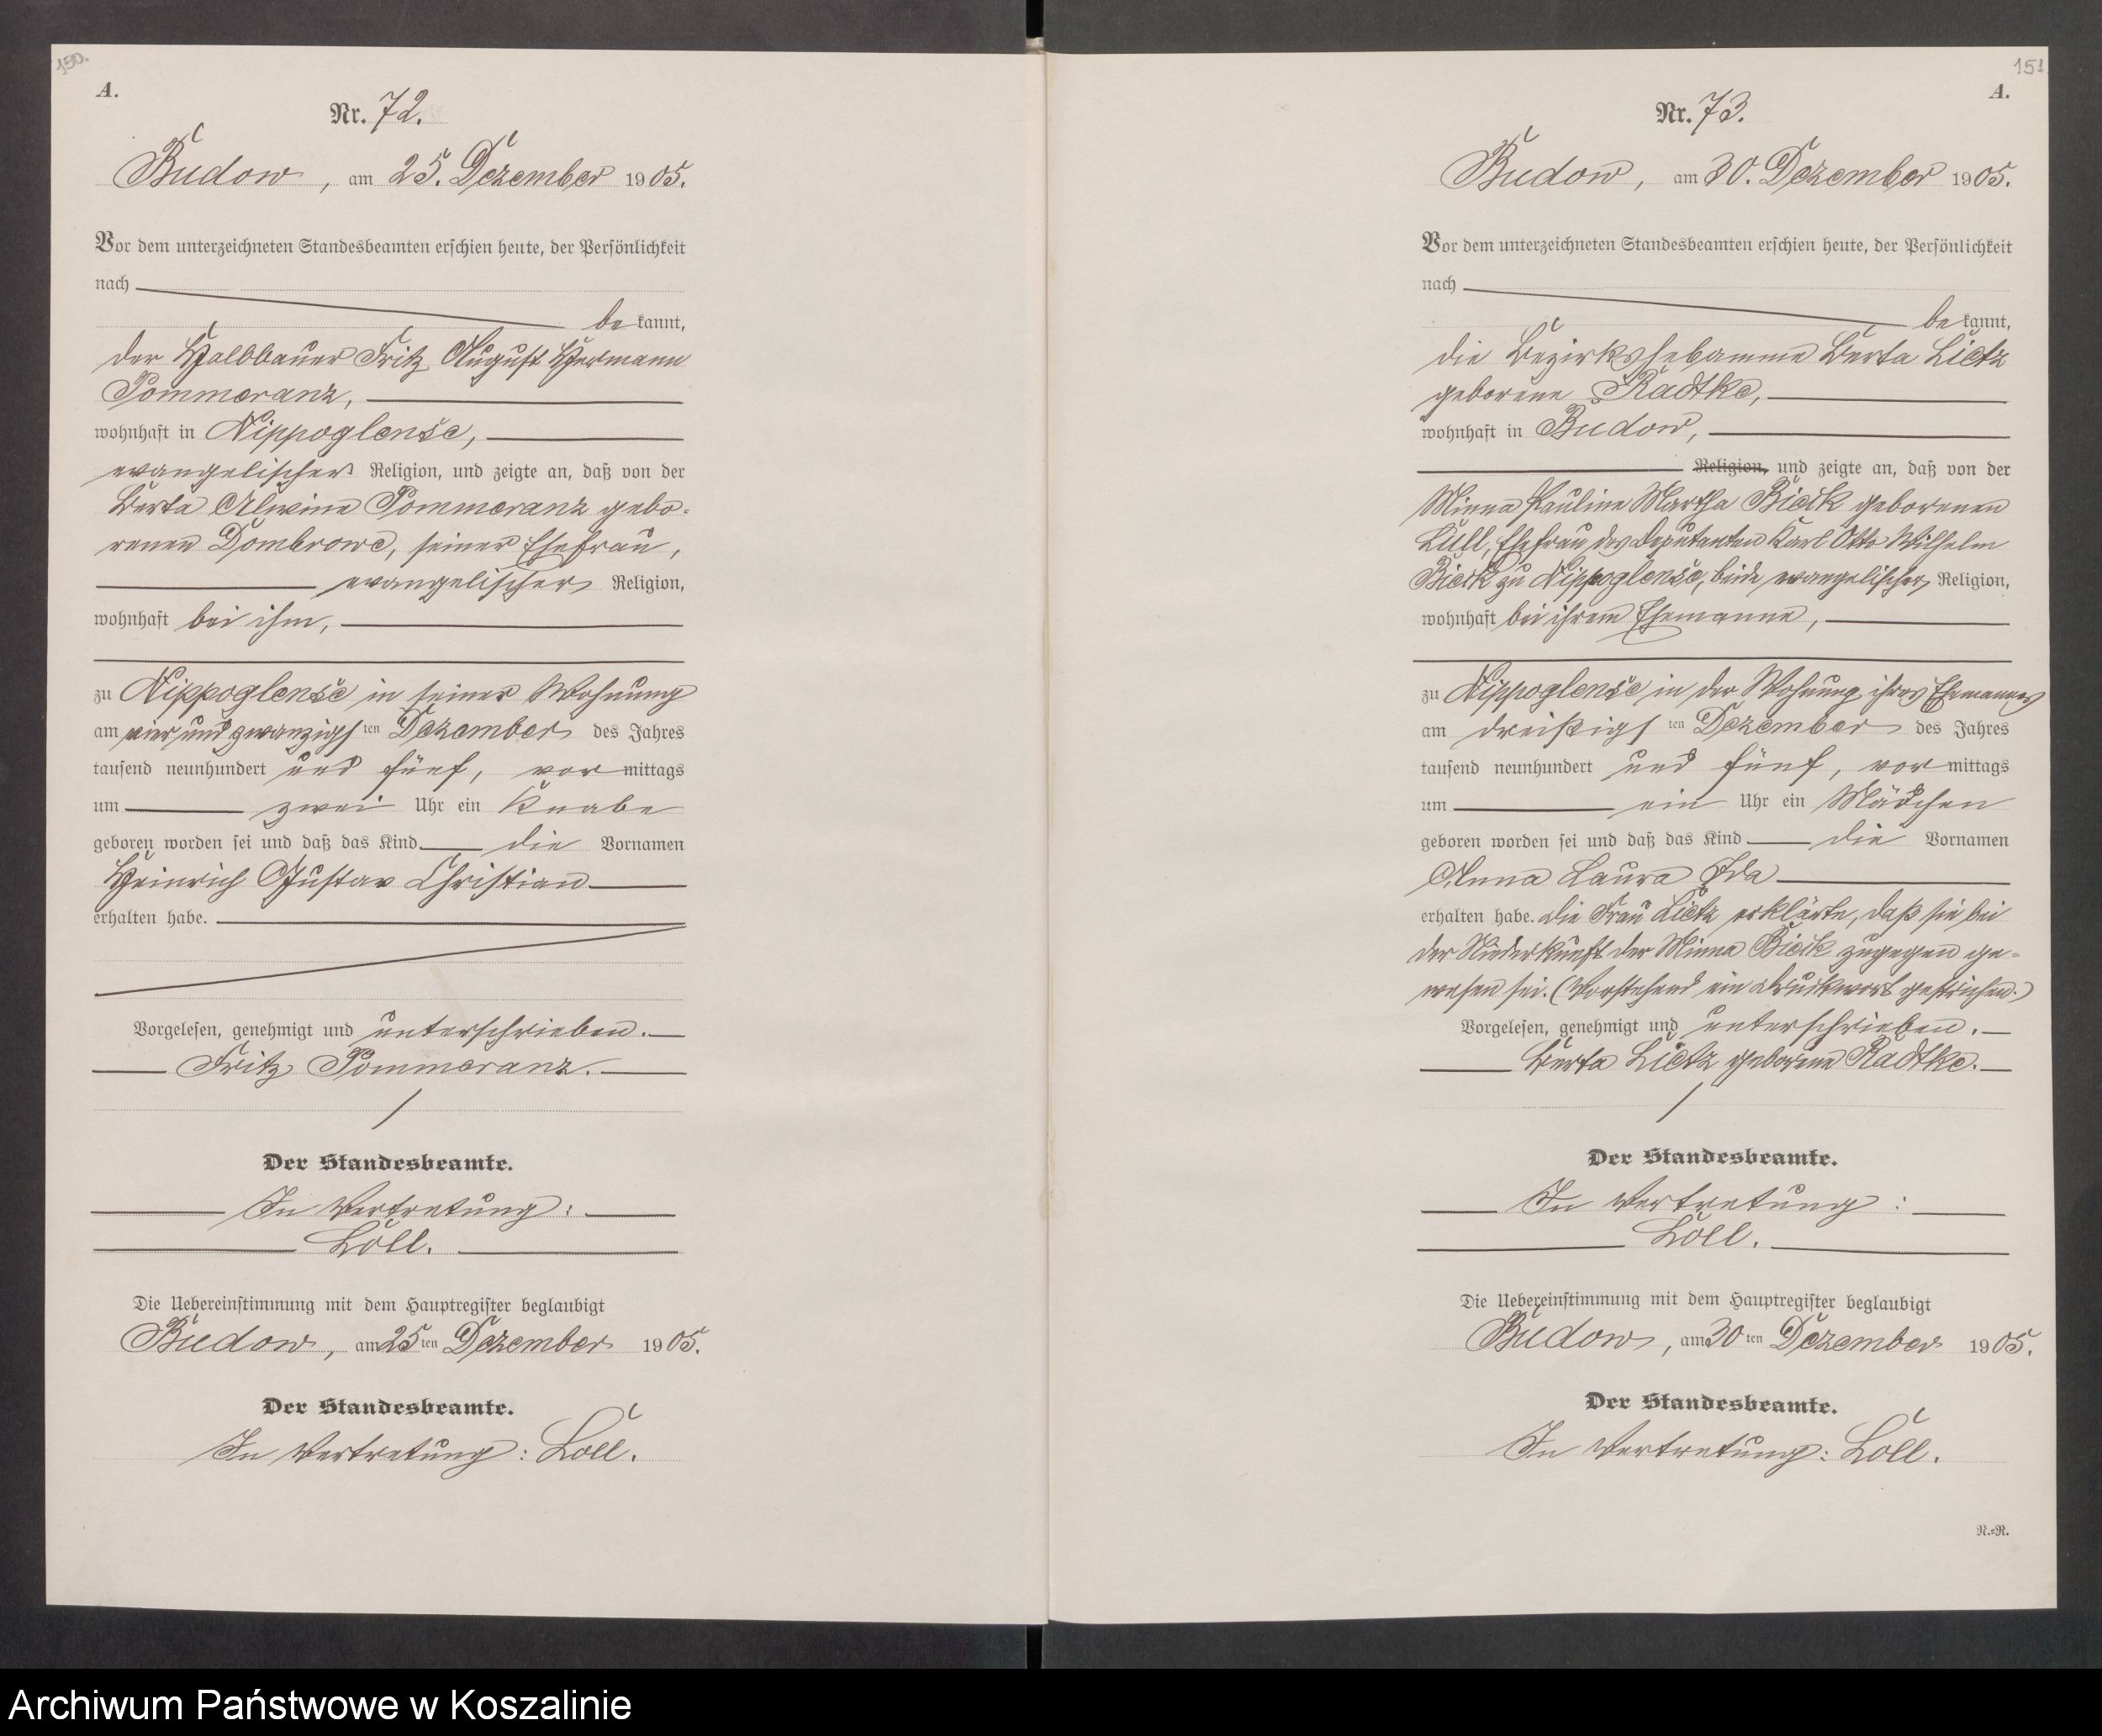 150.
A.
Nr. 72.
Budow, am 25. Dezember 1905.
Vor dem unterzeichneten Standesbeamten erschien heute, der Persönlichkeit
nach
be kannt,
der Halbbauer Fritz August Hermann
Pommeranz,
wohnhaft in Nippoglense,
evangelischer Religion, und zeigte an, daß von der
Berta Alwine Pommeranz gebo-
renen Dombrowe, seiner Ehefrau,
evangelischer Religion,
wohnhaft bei ihm,
zu Nippoglense in seiner Wohnung
am vier und zwanzigsten Dezember des Jahres
tausend neunhundert und fünf, vor mittags
um zwei Uhr ein Knabe
geboren worden sei und daß das Kind die Vornamen
Heinrich Gustav Christian
erhalten habe.
Vorgelesen, genehmigt und unterschrieben.
Fritz Pommeranz.
Der Standesbeamte.
In Vertretung:
Loll.
Die Uebereinstimmung mit dem Hauptregister beglaubigt
Budow, am 25ten Dezember 1905.
Der Standesbeamte.
In Vertretung: Loll.
151
A.
Nr. 73.
Budow, am 30. Dezember 1905.
Vor dem unterzeichneten Standesbeamten erschien heute, der Persönlichkeit
nach
be kannt,
die Bezirkshebamme Berta Lietz
geborene Radtke,
wohnhaft in Budow,
Religion, und zeigte an, daß von der
Minna Pauline Martha geborenen
Lüll, Ehefrau des Deputanten Karl Otto Wilhelm
zu Nippoglense, beide evangelischer Religion,
wohnhaft bei ihrem Ehemanne,
zu Nippoglense in der Wohnung ihres Ehemannes
am dreißigsten Dezember des Jahres
tausend neunhundert und fünf, vor mittags
um ein Uhr ein Mädchen
geboren worden sei und daß das Kind die Vornamen
Anna Laura Ida
erhalten habe. Die Frau Lietz erklärte, daß sie bei
der Niederkunft der Minna zugegen ge-
wesen sei. (Vorstehend ein Druckwort gestrichen.)
Vorgelesen, genehmigt und unterschrieben.
Berta Lietz geborene Radtke.
Der Standesbeamte.
In Vertretung:
Loll.
Die Uebereinstimmung mit dem Hauptregister beglaubigt
Budow, am 30ten Dezember 1905.
Der Standesbeamte.
In Vertretung: Loll.
N.-R.
Archiwum Państwowe w Koszalinie